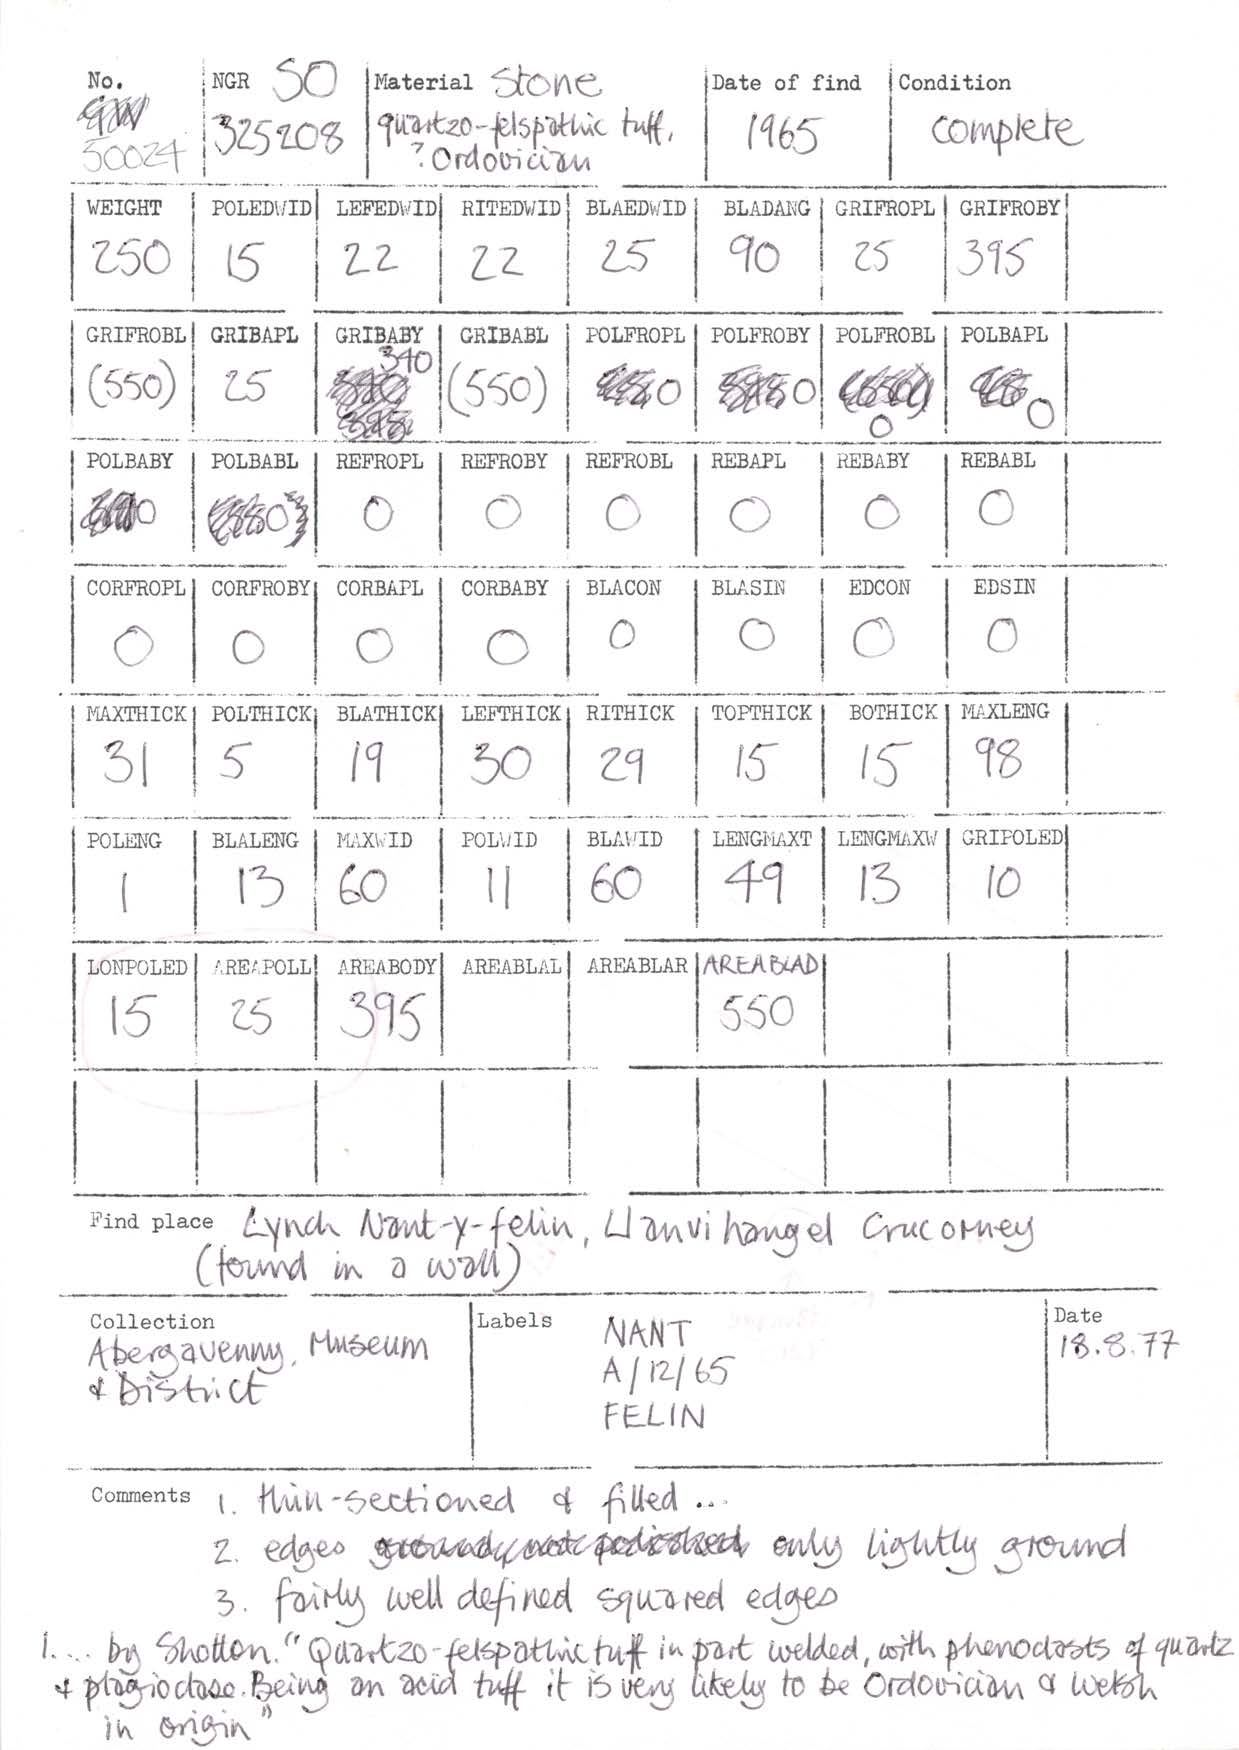 No. NGR SO Material Stone Date of find Condition
50024 325208 quartzo-felspathic tuff, 1965 complete
? Ordovician
WEIGHT POLEDWID LEFEDWID RITEDWID BLAEDWID BLADANG GRIFROPL GRIFROBY
250 15 22 22 25 90 25 395
GRIFROBL GRIBAPL GRIBABY GRIBABL POLFROPL POLFROBY POLFROBL POLBAPL
(550) 25 340 (550) 0 0 0 0
POLBABY POLBABL REFROPL REFROBY REFROBL REBAPL REBABY REBABL
0 0 0 0 0 0 0 0
CORFROPL CORFROBY CORBAPL CORBABY BLACON BLASIN EDCON EDSIN
0 0 0 0 0 0 0 0
MAXTHICK POLTHICK BLATHICK LEFTHICK RITHICK TOPTHICK BOTHICK MAXLENG
31 5 19 30 29 15 15 98
POLENG BLALENG MAXWID POLWID BLAWID LENGMAXT LENGMAXW GRIPOLED
1 13 60 11 60 49 13 10
LONPOLED AREAPOLL AREABODY AREABLAL AREABLAR AREABLAD
15 25 395 550
Find place Lynch Nant-y-felin, Llanvihangel Crucorney
(found in a wall)
Collection Labels Date
Abergavenny Museum NANT 18.8.77
& District A/12/65
FELIN
Comments 1. thin-sectioned & filled ...
2. edges only lightly ground
3. fairly well defined squared edges
1.... by Shotton. "Quartzo-felspathic tuff in part welded, with phenoclasts of quartz
& plagioclase. Being an acid tuff it is very likely to be Ordovician & Welsh
in origin"